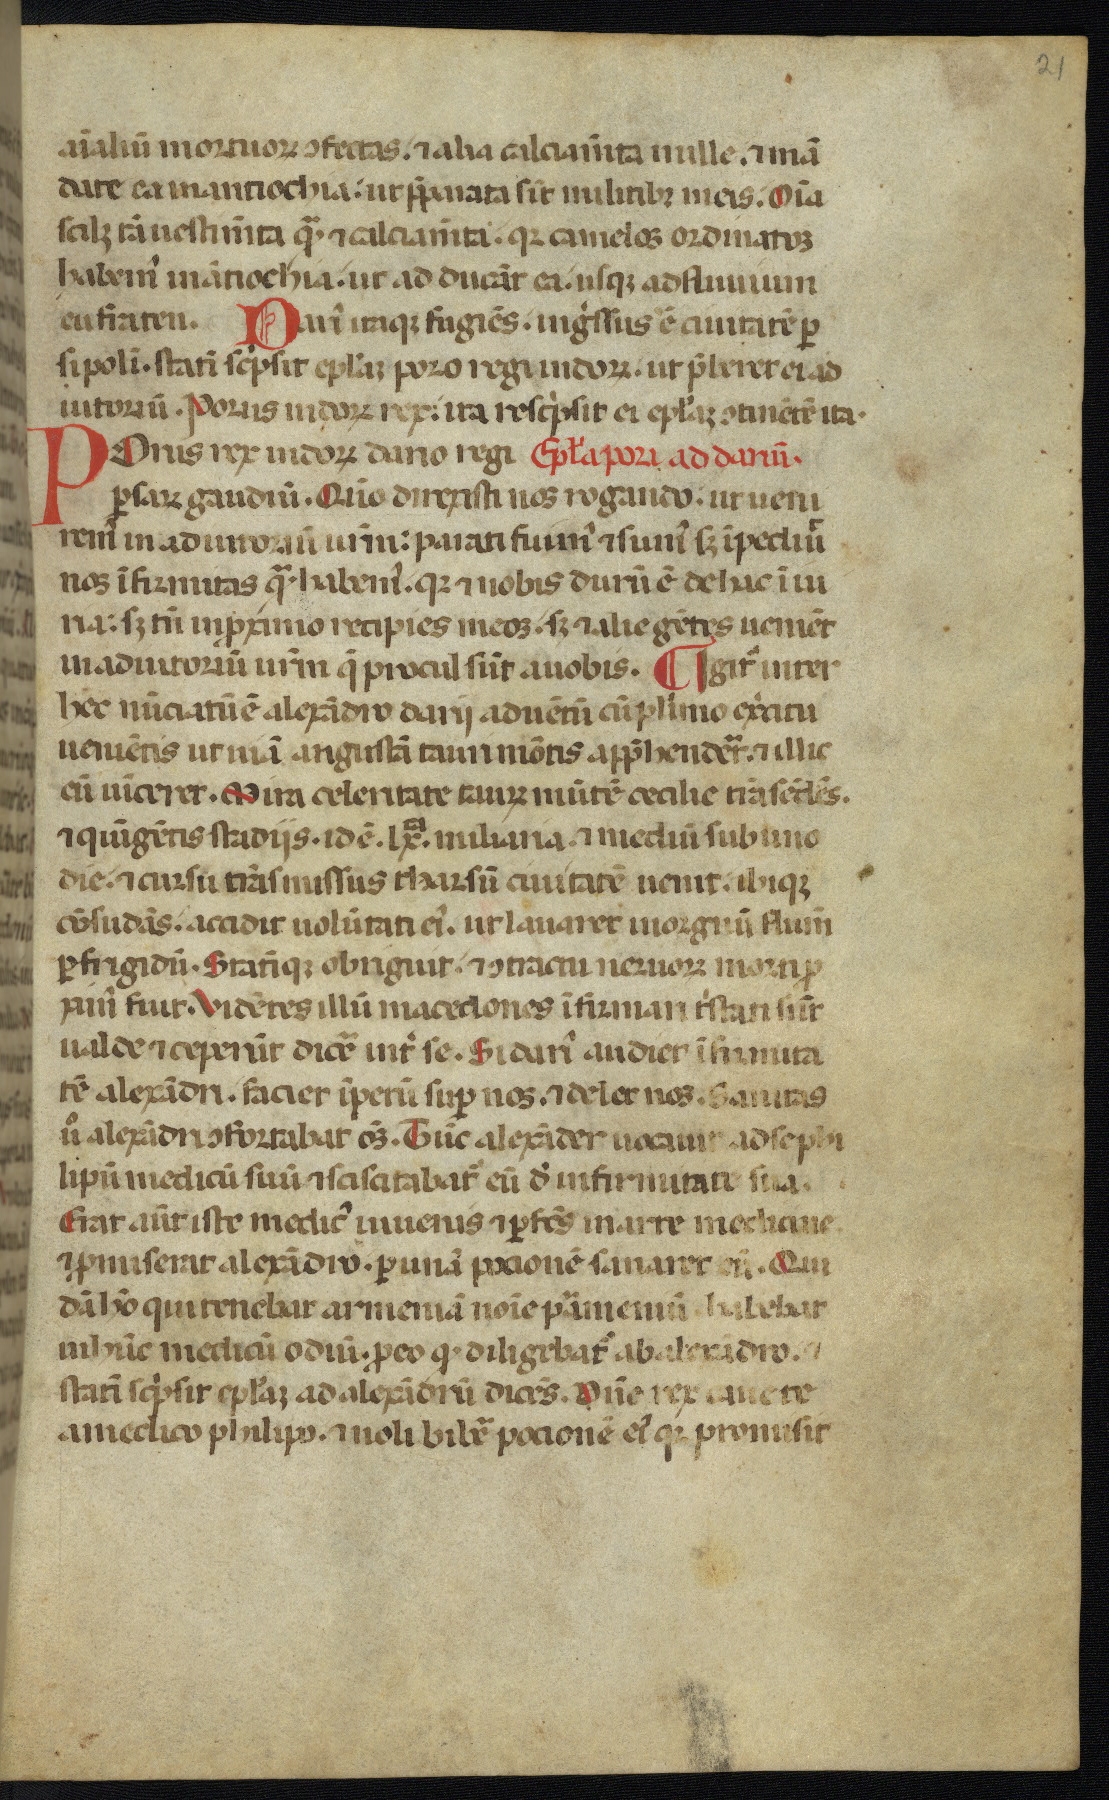 21
aīaliū mortuoꝝ ɔfectas. ⁊ alia calciam̄ta mille. ⁊ mā
date ea in antiochia. ut p̄parata sīt militibꝰ meis. Oīa
scilꝫ tā uestim̄ta qͣ ⁊ calciam̄ta. qꝛ camelos ordinatos
habemꝰ in ātiochia. ut ad ducāt ea. usqꝫ ad fluuium
eufraten. Dariꝰ itaqꝫ fugiēs. ingͥssus ē ciuitatē ꝑ
sipolī. statī scͥpsit ep̄laꝫ poro regi indoꝝ. ut p̄beret ei ad
iutoriū. Porus indoꝝ rex: ita rescͥpsit ei ep̄laꝫ ɔtinētē ita.
POrus rex indoꝝ dario regi Ep̄la pori ad dariū.
ꝑsaꝝ gaudiū. Qūo direxisti nos rogando. ut ueni
remꝰ in adiutoriū ur̄m: parati fuimꝰ ⁊ sumꝰ sꝫ īpediūt
nos īfirmitas qͣ habemꝰ. qꝛ ⁊ nobis durū ē de hac īiu
ria: sꝫ tn̄ in ꝓximo recipies meos. sꝫ ⁊ alie gētes ueniēt
in adiutoriū ur̄m q̄ procul sūt a uobis. Igitͬ inter
hec nūciatū ē alexādro darij aduētū cū plͥimo exͥcitu
ueniētis ut uiā angustā tauri mōtis app̄henderet. ⁊ illic
eū uīceret. Mira celeritate tauꝝ mūtē cecilie trāscēdēs.
⁊ quīgētis stadijs. id ē. lxͣ. miliaria. ⁊ mediū sub uno
die. ⁊ cursu trāsmissus tharsū ciuitatē uenit. ibiqꝫ
cōsudās. accidit uolūtati eiꝰ. ut lauaret in orgnū flum̄
ꝑfrigidū. Statīqꝫ obriguit. ⁊ ɔtractu neruoꝝ morti ꝓ
ximꝰ fuit. Vidētes illū macedones īfirmari tͥstati sūt
ualde ⁊ ceperūt dicē intͬ se. Si dariꝰ audiet īfirmita
tē alexādri. faciet īpetū suꝑ nos. ⁊ delet nos. Sanitas
ū alexādri ɔfortabat eos. Tūc alexāder uocauit ad se phi
lipū medicū suū ⁊ sciscitabatͬ eū dͥ infirmitate sua.
Erat aūt iste medicꝰ iuuenis ⁊ ꝑfc̄s in arte medicine.
⁊ ꝓmiserat alexādro. ꝑ unā pocionē sanaret eū. Qui
dā hō qui tenebat armeniā noīe pͣmeniū habebat
in hūc medicū odiū. ꝑ eo qͩ diligebatͬ ab alexādro. ⁊
statī scͥpsit ep̄laꝫ ad alexādrū dicēs. Dn̄e rex caue te
a medico philipo. ⁊ noli bibͤre pocionē eiꝰ qꝛ promisit